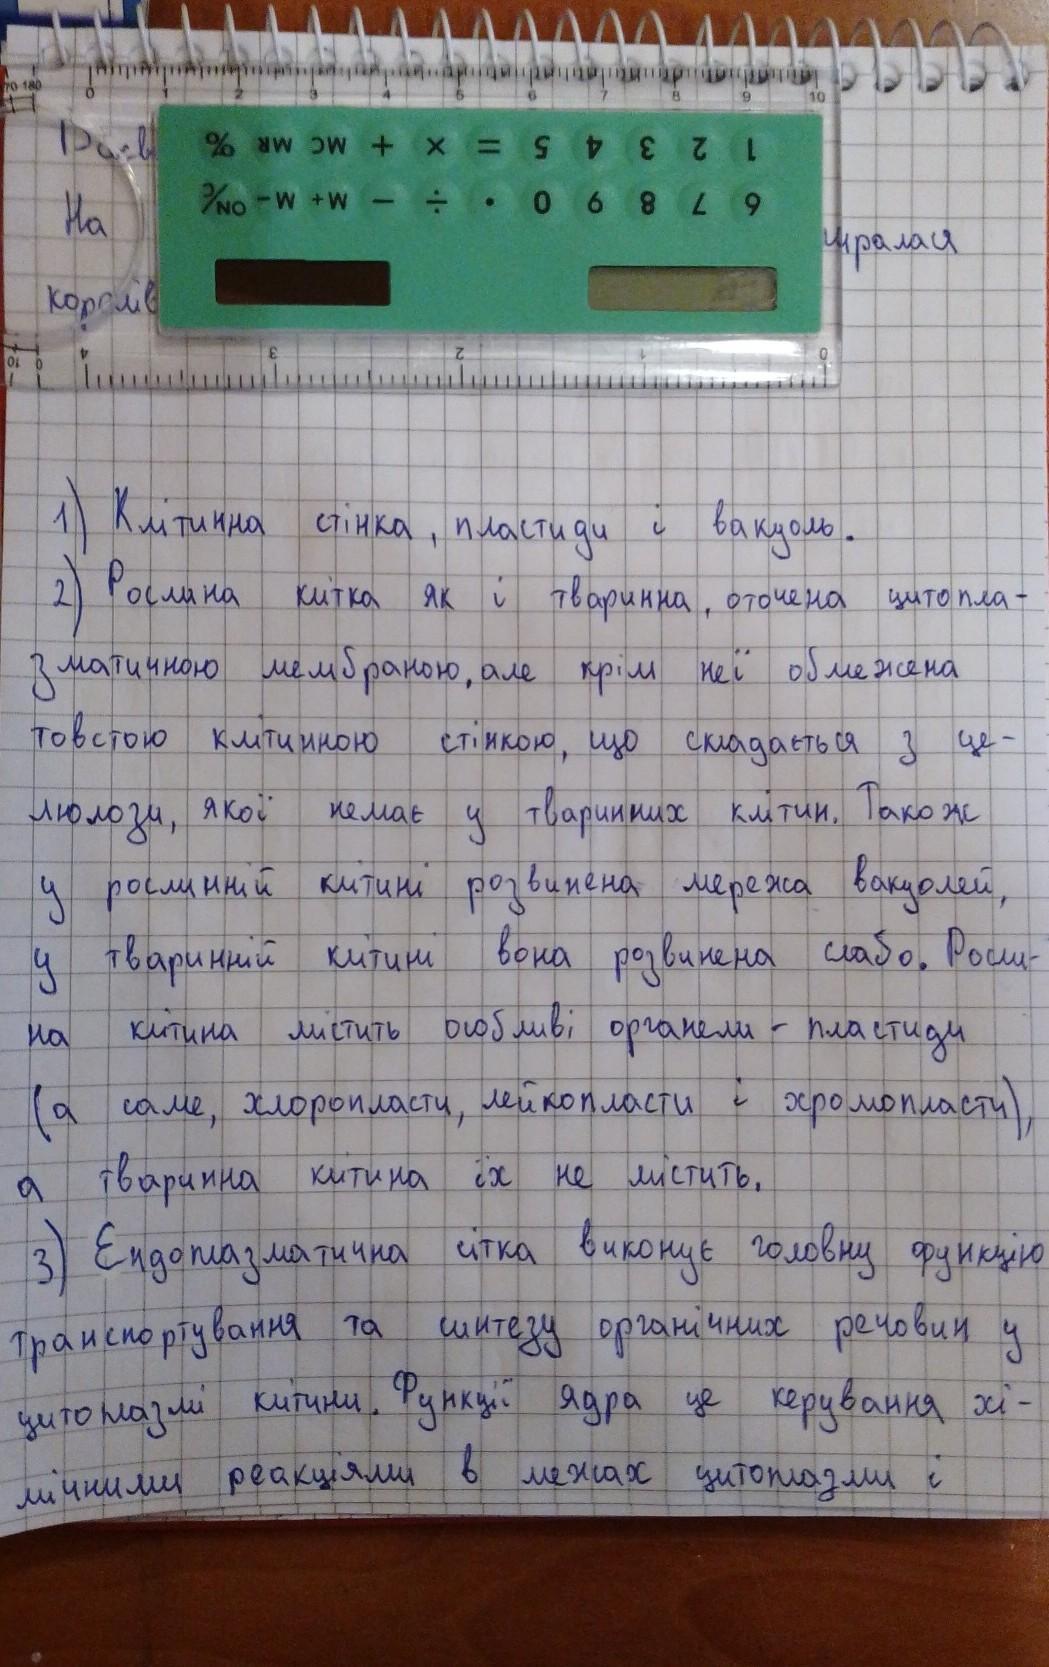 70 180 0 1 2 3 4 5 6 7 8 9 10
% MR MC MR + × = 5 4 3 2 1
На ON/C M- M+ - ÷ • 0 9 8 7 6
иралася
королів
10 0 4 3 2 1 0
1) Клітинна стінка, пластиди і вакуоль.
2) Рослина клітка як і тваринна, оточена цитопла-
зматичною мембраною, але крім неї обмежена
товстою клітинною стінкою, що складається з це-
люлози, якої немає у тваринних клітин. Також
у рослинній клітині розвинена мережа вакуолей,
у тваринній клітині вона розвинена слабо. Росли-
на клітина містить особливі органели - пластиди
(а саме, хлоропласти, лейкопласти і хромопласти),
а тваринна клітина їх не містить.
3) Ендоплазматична сітка виконує головну функцію
транспортування та синтезу органічних речовин у
цитоплазмі клітини. Функції ядра це керування хі-
мічними реакціями в межах цитоплазми і